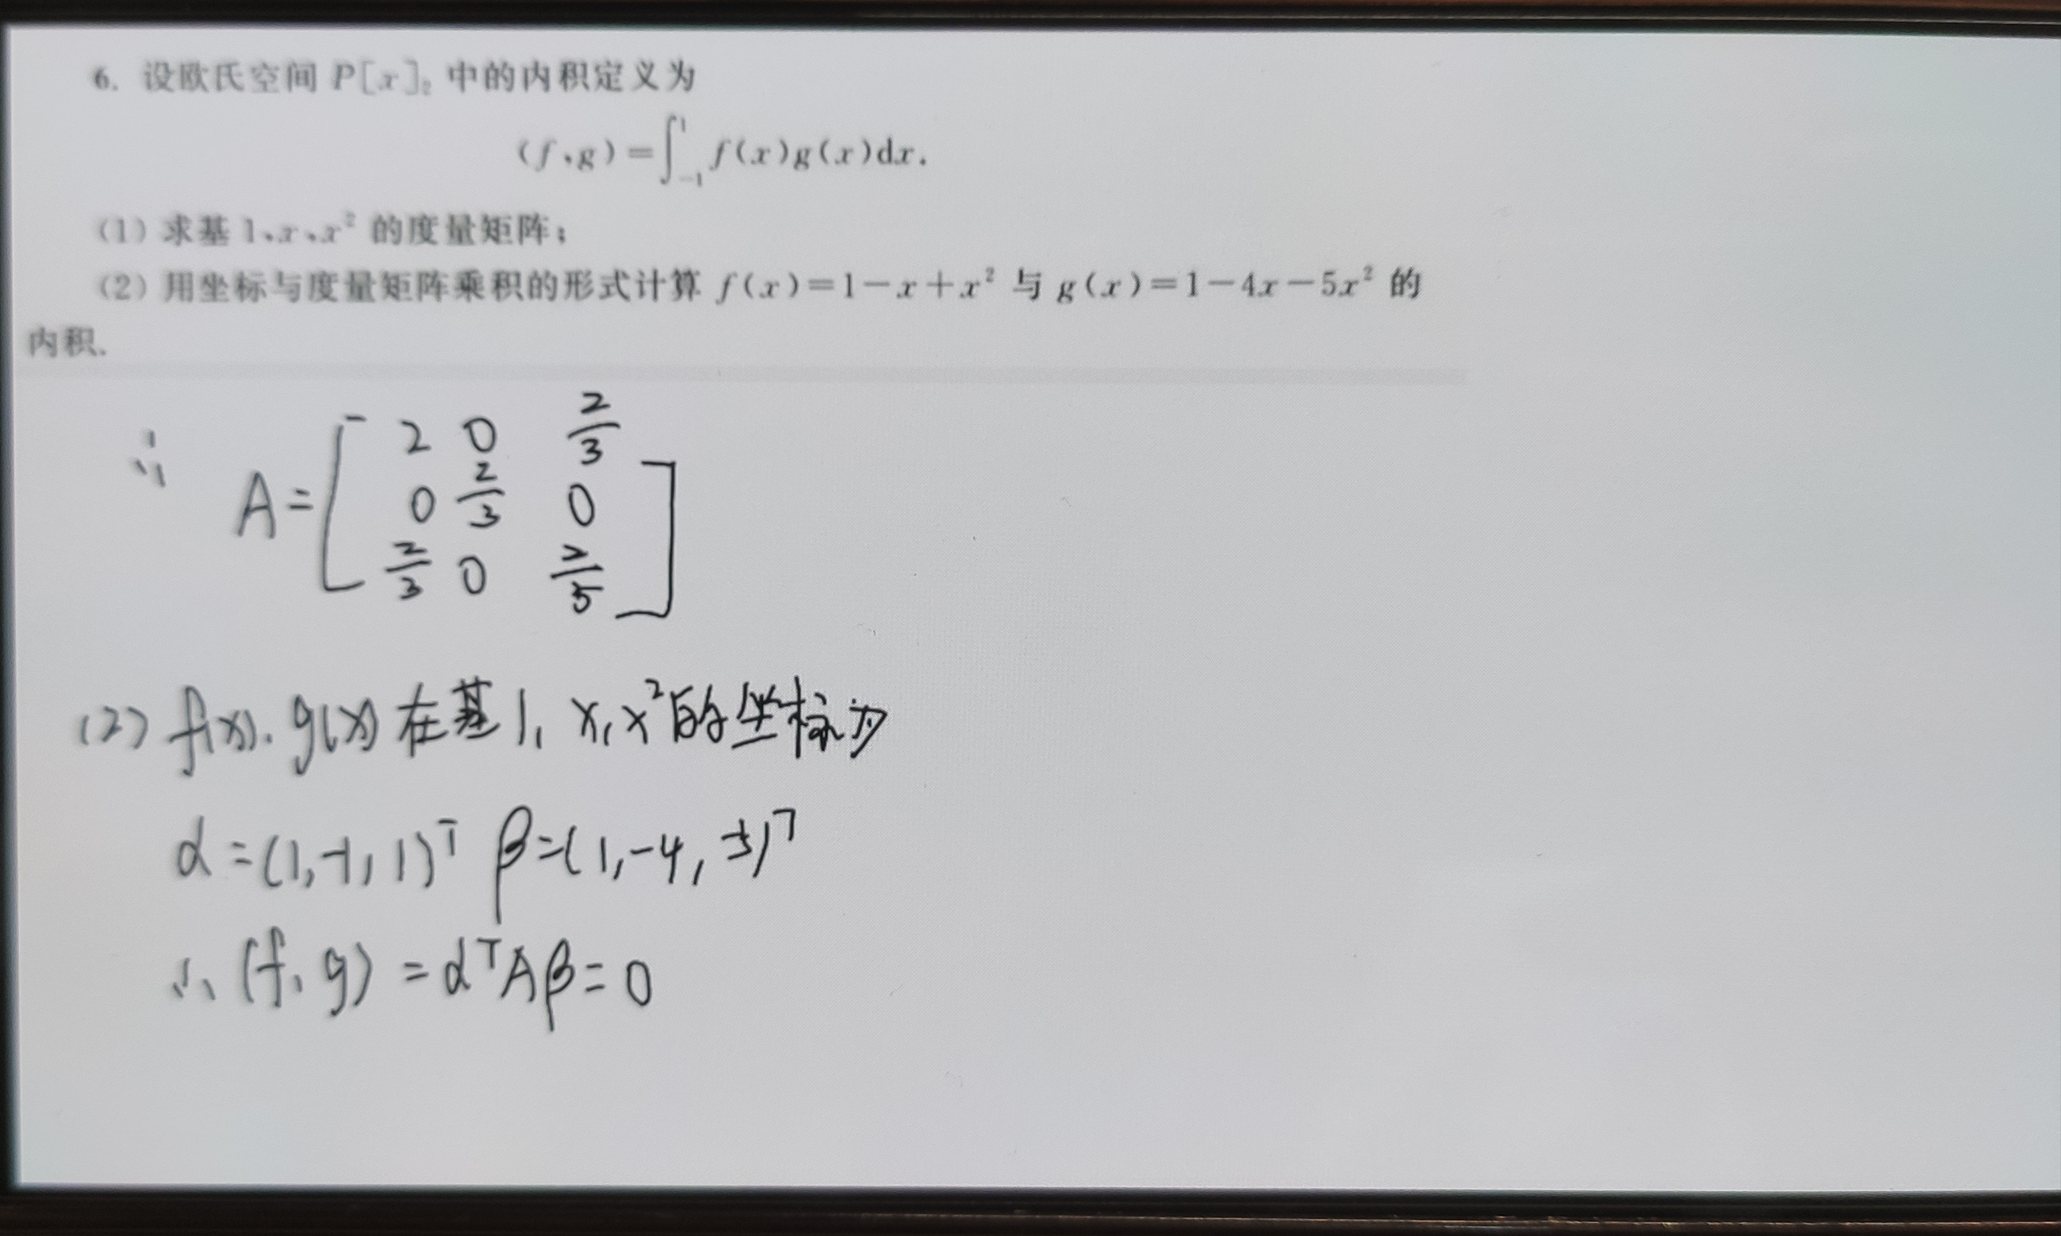 6. 设欧氏空间 P[x]₂ 中的内积定义为
(f,g)=∫₋₁¹ f(x)g(x)dx.
(1) 求基 1、x、x² 的度量矩阵;
(2) 用坐标与度量矩阵乘积的形式计算 f(x)=1-x+x² 与 g(x)=1-4x-5x² 的
内积.
∴ A=[2 0 2/3
0 2/3 0
2/3 0 2/5]
(2) f(x), g(x) 在基 1, x, x² 的坐标为
α=(1,-1,1)ᵀ β=(1,-4,-5)ᵀ
∴ (f,g)=αᵀAβ=0